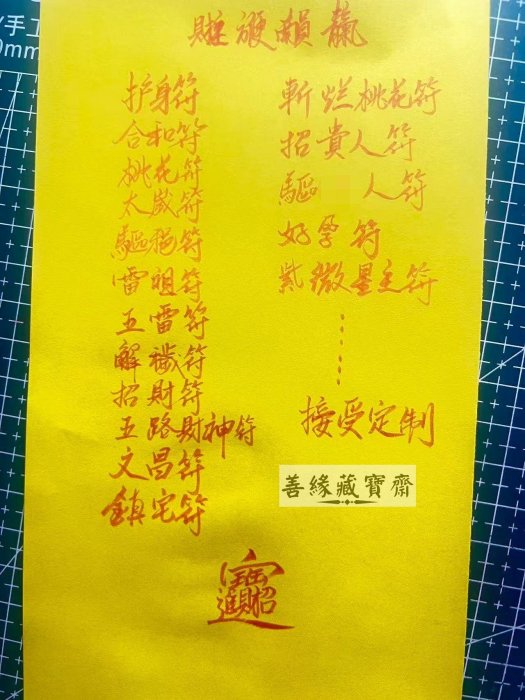 护身符
合和符
桃花符
太歲符
驅禍符
雷祖符
五雷符
解穢符
招財符
五路財神符
文昌符
鎮宅符
斬烂桃花符
招貴人符
驅 人符
好孕符
紫微星主符
接受定制
善緣藏寶齋
招財進寶
手工
0mm